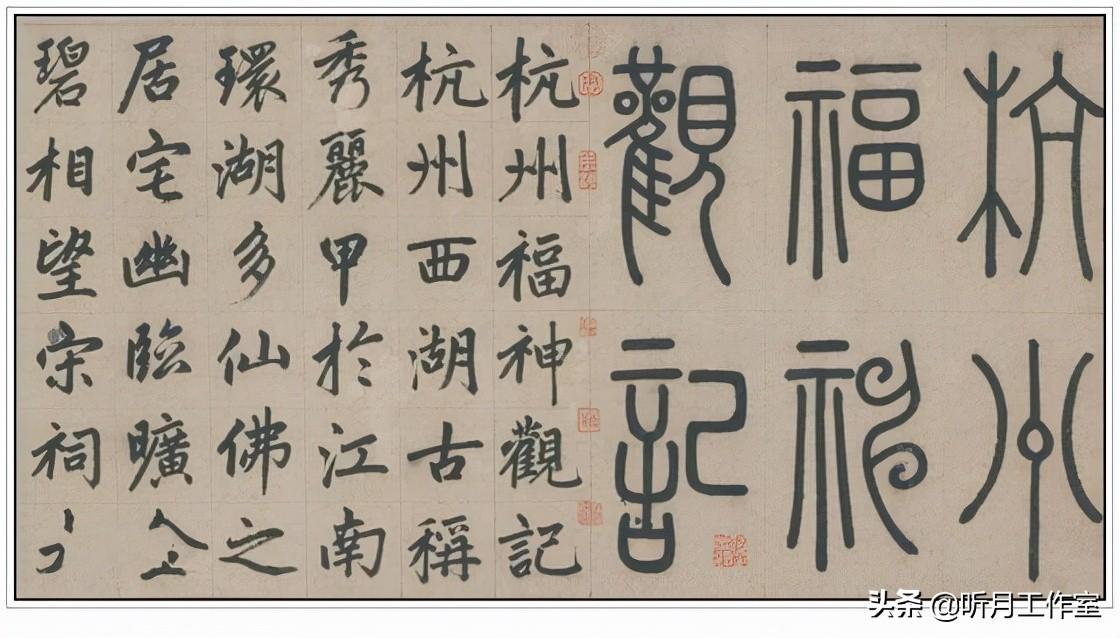 杭州
福神
觀記
杭州福神觀記
杭州西湖古稱
秀麗甲於江南
環湖多仙佛之
居宅幽臨曠
碧相望宗祠
头条 @听月工作室